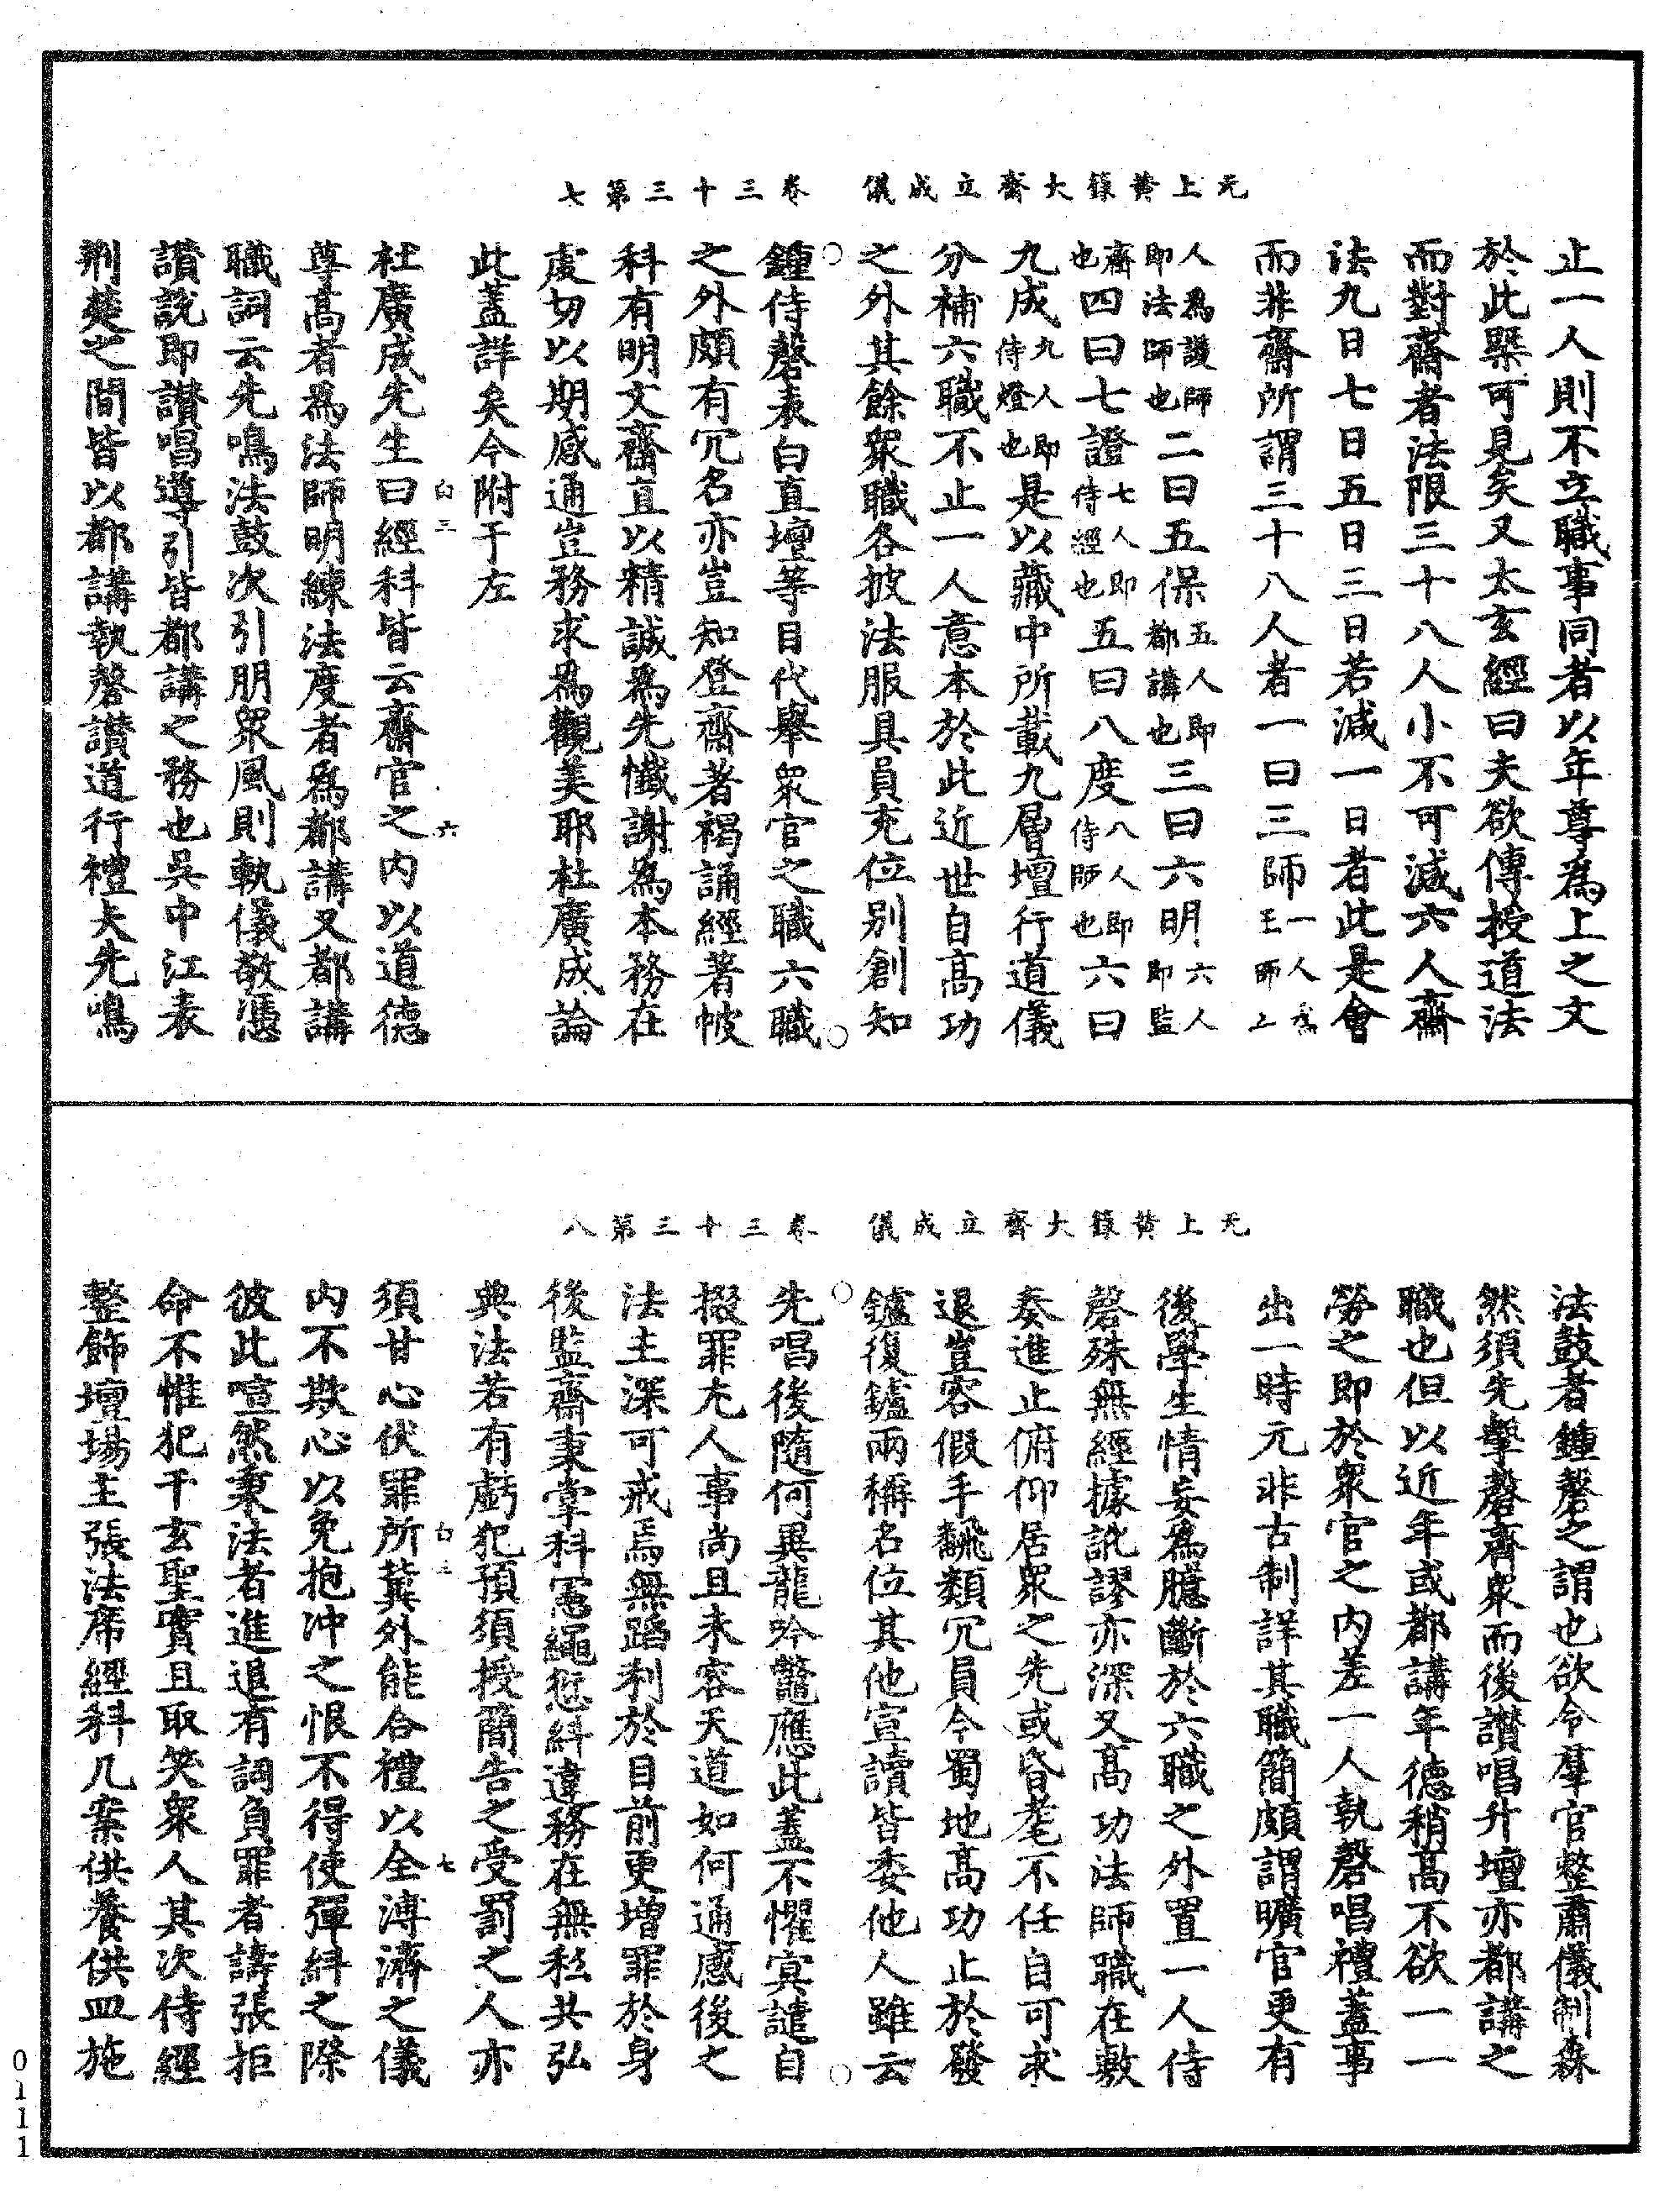 无上黄籙大齋立成儀　卷三十三第七
止一人則不立職事同者以年尊為上之文
於此槩可見矣又太玄經曰夫欲傳授道法
而對齋者法限三十八人小不可減六人齋
法九日七日五日三日若減一日者此是會
而非齋所謂三十八人者一曰三師一人為王師上
人為護師即法師也二曰五保五人即都講也三曰六明六人即監
齋也四曰七證七人即侍經也五曰八度八人即侍師也六曰
九成九人即侍燈也是以藏中所載九層壇行道儀
分補六職不止一人意本於此近世自高功
之外其餘眾職各披法服具員充位别創知
鍾侍磬表白直壇等目代舉眾官之職六職
之外頗有冗名亦豈知登齋著褐誦經著帔
科有明文齋直以精誠為先懺謝為本務在
虔切以期感通豈務求為觀美耶杜廣成論
此蓋詳矣今附于左
白三　六
杜廣成先生曰經科皆云齋官之內以道德
尊高者為法師明練法度者為都講又都講
職詞云先鳴法鼓次引朋眾風則軌儀敬憑
讚說即讚唱導引皆都講之務也吳中江表
荆楚之間皆以都講執磬讚道行禮夫先鳴
无上黄籙大齋立成儀　卷三十三第八
法鼓者鍾磬之謂也欲令羣官整肅儀制森
然須先擊磬齊眾而後讚唱升壇亦都講之
職也但以近年或都講年德稍高不欲一一
勞之即於眾官之內差一人執磬唱禮蓋事
出一時元非古制詳其職簡頗謂曠官更有
後學生情妄為臆斷於六職之外置一人侍
磬殊無經據訛謬亦深又高功法師職在敷
奏進止俯仰居眾之先或昏耄不任自可求
退豈容假手飜類冗員今蜀地高功止於發
鑪復鑪兩稱名位其他宣讀皆委他人雖云
先唱後隨何異龍吟鼈應此蓋不懼冥譴自
掇罪尤人事尚且未容天道如何通感後之
法主深可戒焉無蹈利於目前更增罪於身
後監齋秉掌科憲繩愆糾違務在無私共弘
典法若有虧犯預須授簡告之受罰之人亦
白三　七
須甘心伏罪所冀外能合禮以全溥濟之儀
內不欺心以免抱沖之恨不得使彈糾之際
彼此喧然秉法者進退有詞負罪者譸張拒
命不惟犯干玄聖實且取笑眾人其次侍經
整飾壇場主張法席經科几案供養供皿施
0111